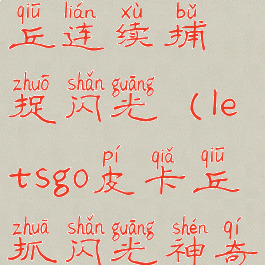 qiū lián xù bǔ
丘连续捕
zhuō shǎn guāng
捉闪光（le
pí qiǎ qiū
tsgo皮卡丘
zhuā shǎn guāng shén qí
抓闪光神奇